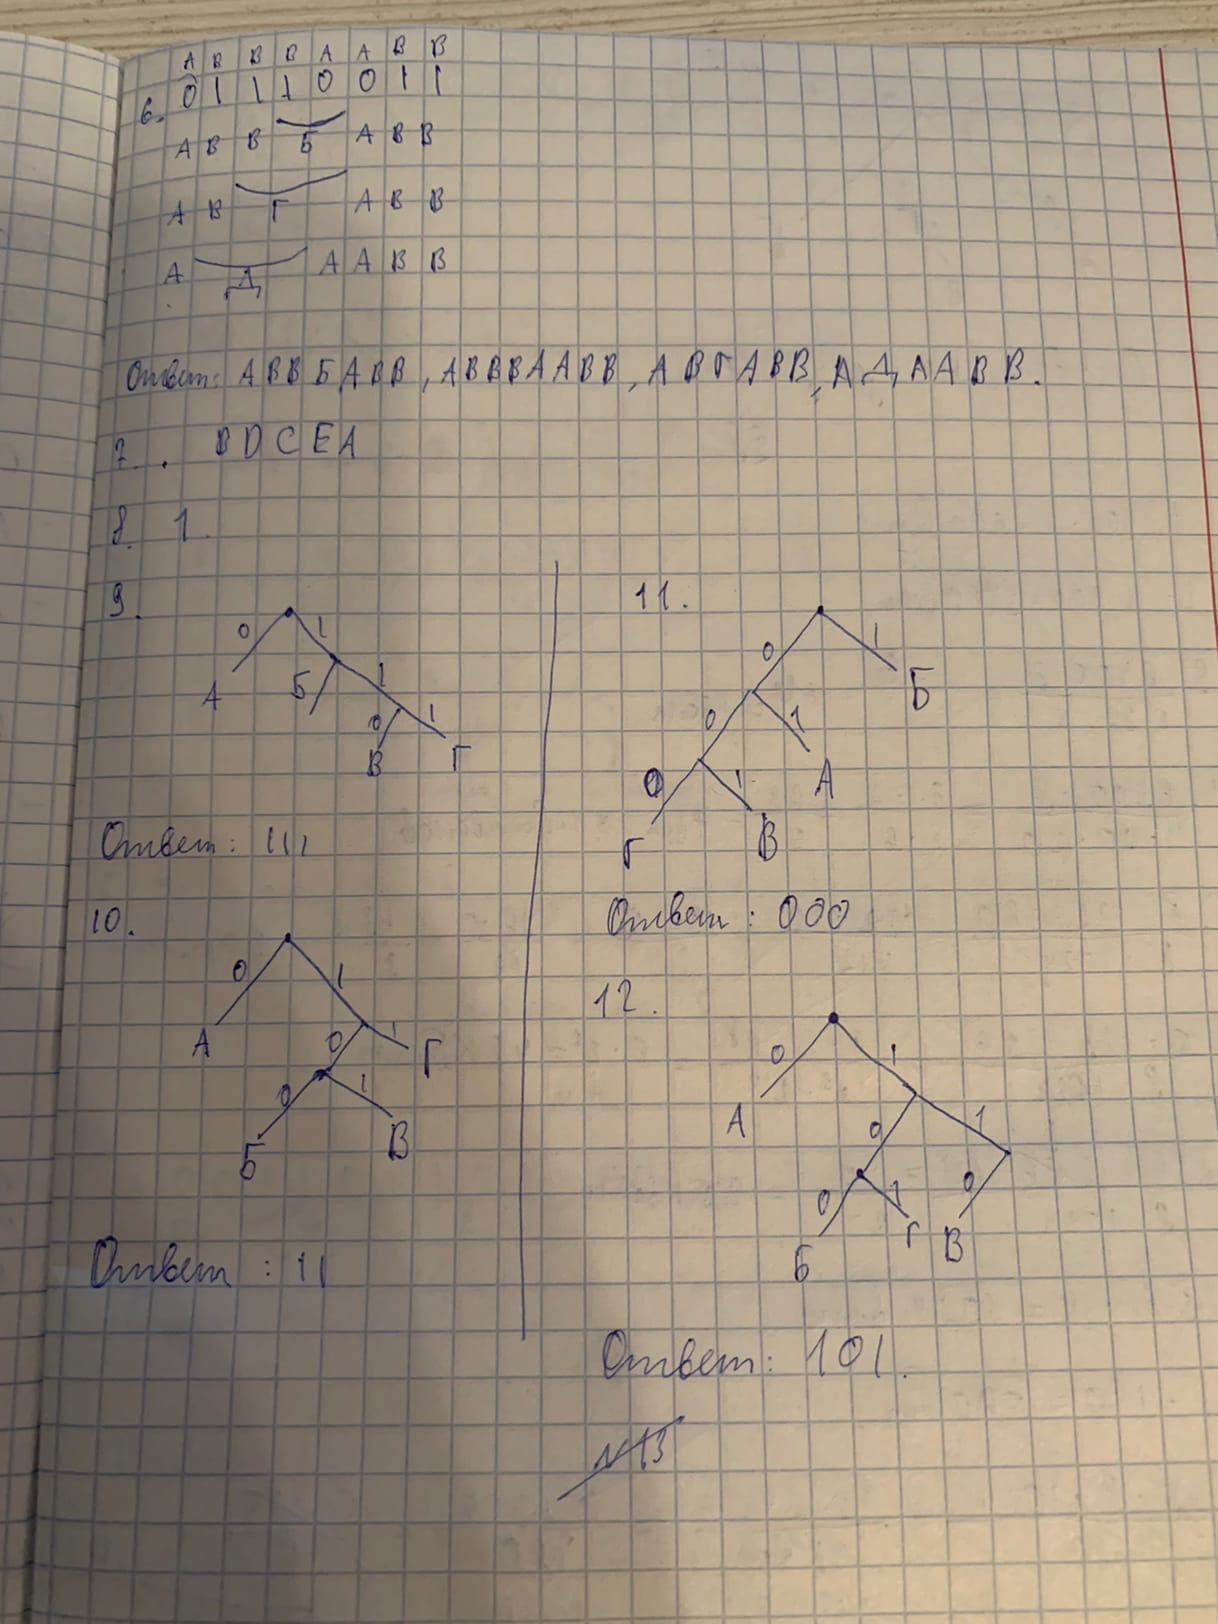 А В В В А А В В
6. 0 1 1 1 0 0 1 1
А В В Б А В В
А В Г А В В
А Д А А В В
Ответ: А В В Б А В В , А В В В А А В В , А В Г А В В , А Д А А В В .
7. . B D C E A
8. 1.
9.
0 1
А Б 1
0 1
В Г
Ответ: 111
10.
0 1
А 0 1 Г
0 1
Б В
Ответ : 11
11.
0 1
Б
0 1
0 1 А
Г В
Ответ : 000
12.
0 1
А 0 1
0 1 0
Б Г В
Ответ: 101.
№13